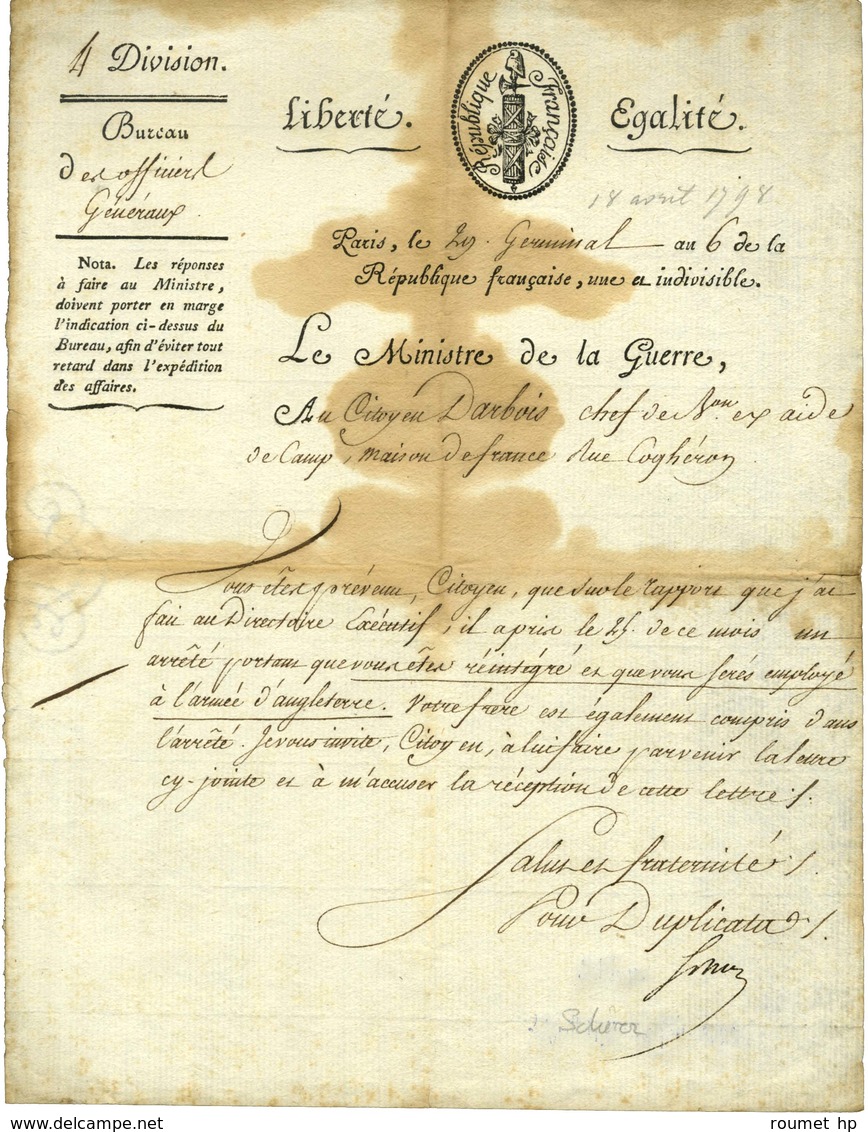 4 Division.
Bureau
des officiers
Généraux.
Nota. Les réponses
à faire au Ministre,
doivent porter en marge
l'indication ci-dessus du
Bureau, afin d'éviter tout
retard dans l'expédition
des affaires.
Liberté.
République Française
Egalité.
18 avril 1798
Paris, le 29. Germinal au 6 de la
République française, une et indivisible.
Le Ministre de la Guerre,
Au Citoyen Darbois chef de Bon. ex aide
de Camp, maison de france Rue Coghéron
Vous êtes prévenu, Citoyen, que sur le rapport que j'ai
fait au Directoire Exécutif, il a pris le 25. de ce mois un
arrêté portant que vous êtes réintégré et que vous serés employé
à l'armée d'angleterre. Votre frere est également compris dans
l'arrêté. Je vous invite, Citoyen, à lui faire parvenir la lettre
cy-jointe et à m'accuser la réception de cette lettre ./.
Salut et fraternité ./.
Pour Duplicata ./.
? Scherer
roumet hp